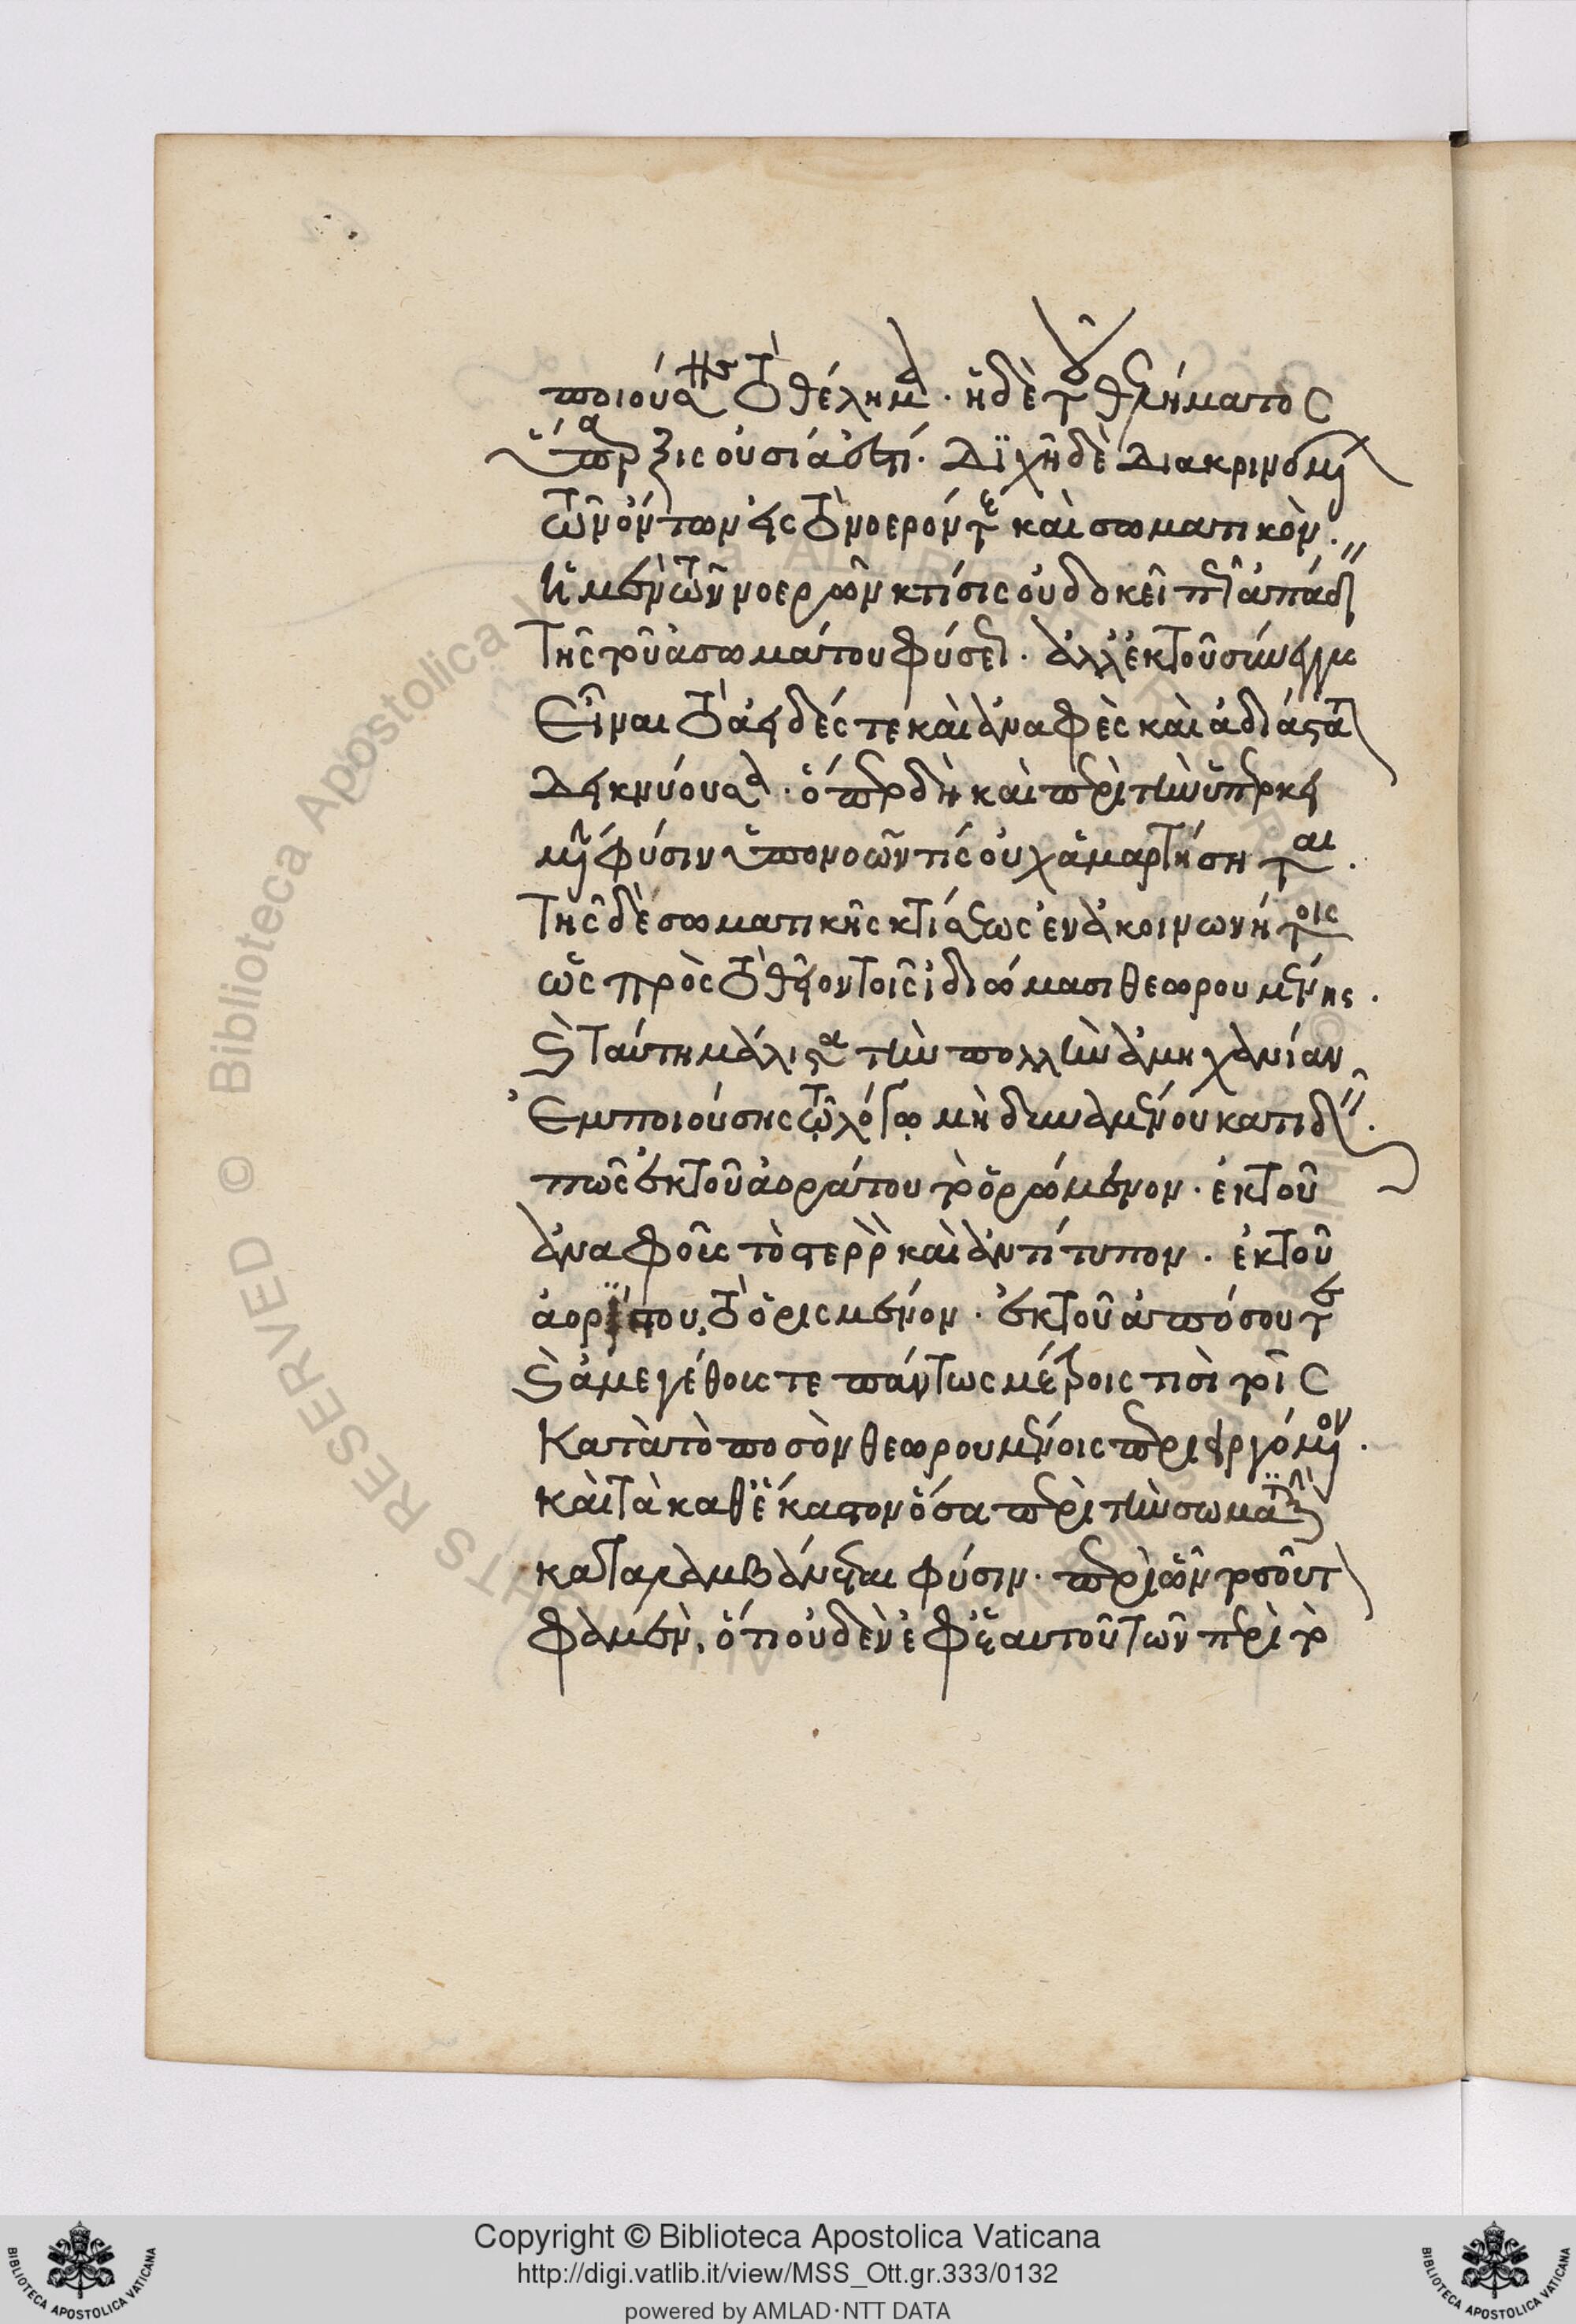 ποιούσης τὸ θέλημα. ἡ δὲ τοῦ θελήματος
ὕπαρξις οὐσία ἐστί. Διχῆ δὲ Διακρινομένων
τῶν ὄντων εἰς τὸ νοερόν τε καὶ σωματικὸν.
Ἡ μὲν τῶν νοερῶν κτίσις οὐ δοκεῖ πως ἀπάδειν
τῆς τοῦ ἀσωμάτου φύσεως. ἀλλ' ἐκ τοῦ σύνεγγυς
Εἶναι τὸ ἀειδές τε καὶ ἀναφὲς καὶ ἀδιάστατον
Δεικνύουσα. ὅπερ δὴ καὶ περὶ τὴν ὑπερκει
μένην φύσιν ὑπονοῶν τίς οὐχ ἁμαρτήσηται.
τῆς δὲ σωματικῆς κτίσεως ἐν ἀκοινωνήτοις
ὡς πρὸς τὸ θεῖον τοῖς ἰδιώμασι θεωρουμένης.
καὶ ταύτη μάλιστα τὴν πολλὴν ἀμηχανίαν
Ἐμποιούσης τῷ λόγῳ μὴ δυναμένου κατιδεῖν.
πῶς ἐκ τοῦ ἀοράτου τὸ ὁρώμενον. ἐκ τοῦ
ἀναφοῦς τὸ στερρὸν καὶ ἀντίτυπον. ἐκ τοῦ
ἀορίστου, τὸ ὁρισμένον. ἐκ τοῦ ἀπόσου τε
καὶ ἀμεγέθους τε πάντως μέτροις τισὶ τοῖς
Κατὰ τὸ ποσὸν θεωρουμένοις περιειργόμενον.
καὶ τὰ καθ' ἕκαστον ὅσα περὶ τὴν σωματικὴν
καταλαμβάνεται φύσιν. περὶ ὧν τοσοῦτον
φαμὲν, ὅτι οὐδὲν ἐφ' ἑαυτοῦ τῶν περὶ τὸ